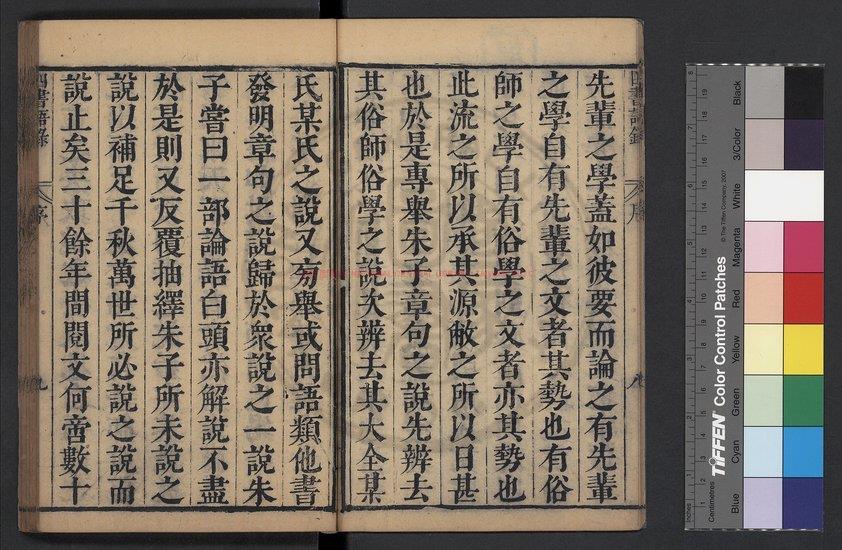 先輩之學蓋如彼要而論之有先輩
之學自有先輩之文者其勢也有俗
師之學自有俗學之文者亦其勢也
此流之所以承其源敝之所以日甚
也於是專舉朱子章句之說先辨去
其俗師俗學之說次辨去其大全某
氏某氏之說又旁舉或問語類他書
發明章句之說歸於衆說之一說朱
子嘗曰一部論語白頭亦解說不盡
於是則又反覆抽繹朱子所未說之
說以補足千秋萬世所必說之說而
說止矣三十餘年間閱文何啻數十
四書語錄
序
九
四書語錄
序
八
Inches
Centimetres
TIFFEN Color Control Patches
© The Tiffen Company, 2007
Blue
Cyan
Green
Yellow
Red
Magenta
White
3/Color
Black